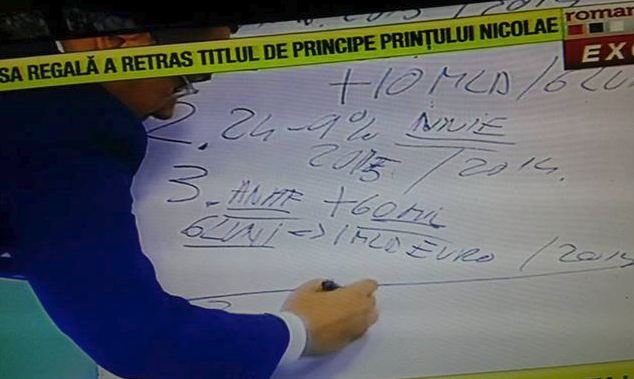 SA REGALĂ A RETRAS TITLUL DE PRINCIPE PRINȚULUI NICOLAE
român
EX
2013 / 201
+10 MLD / 6 LU
2. 24 - 9%
2015 / 2014.
3. ANAF +60 MIL
6 LUNI => 1 MLD EURO / 2015